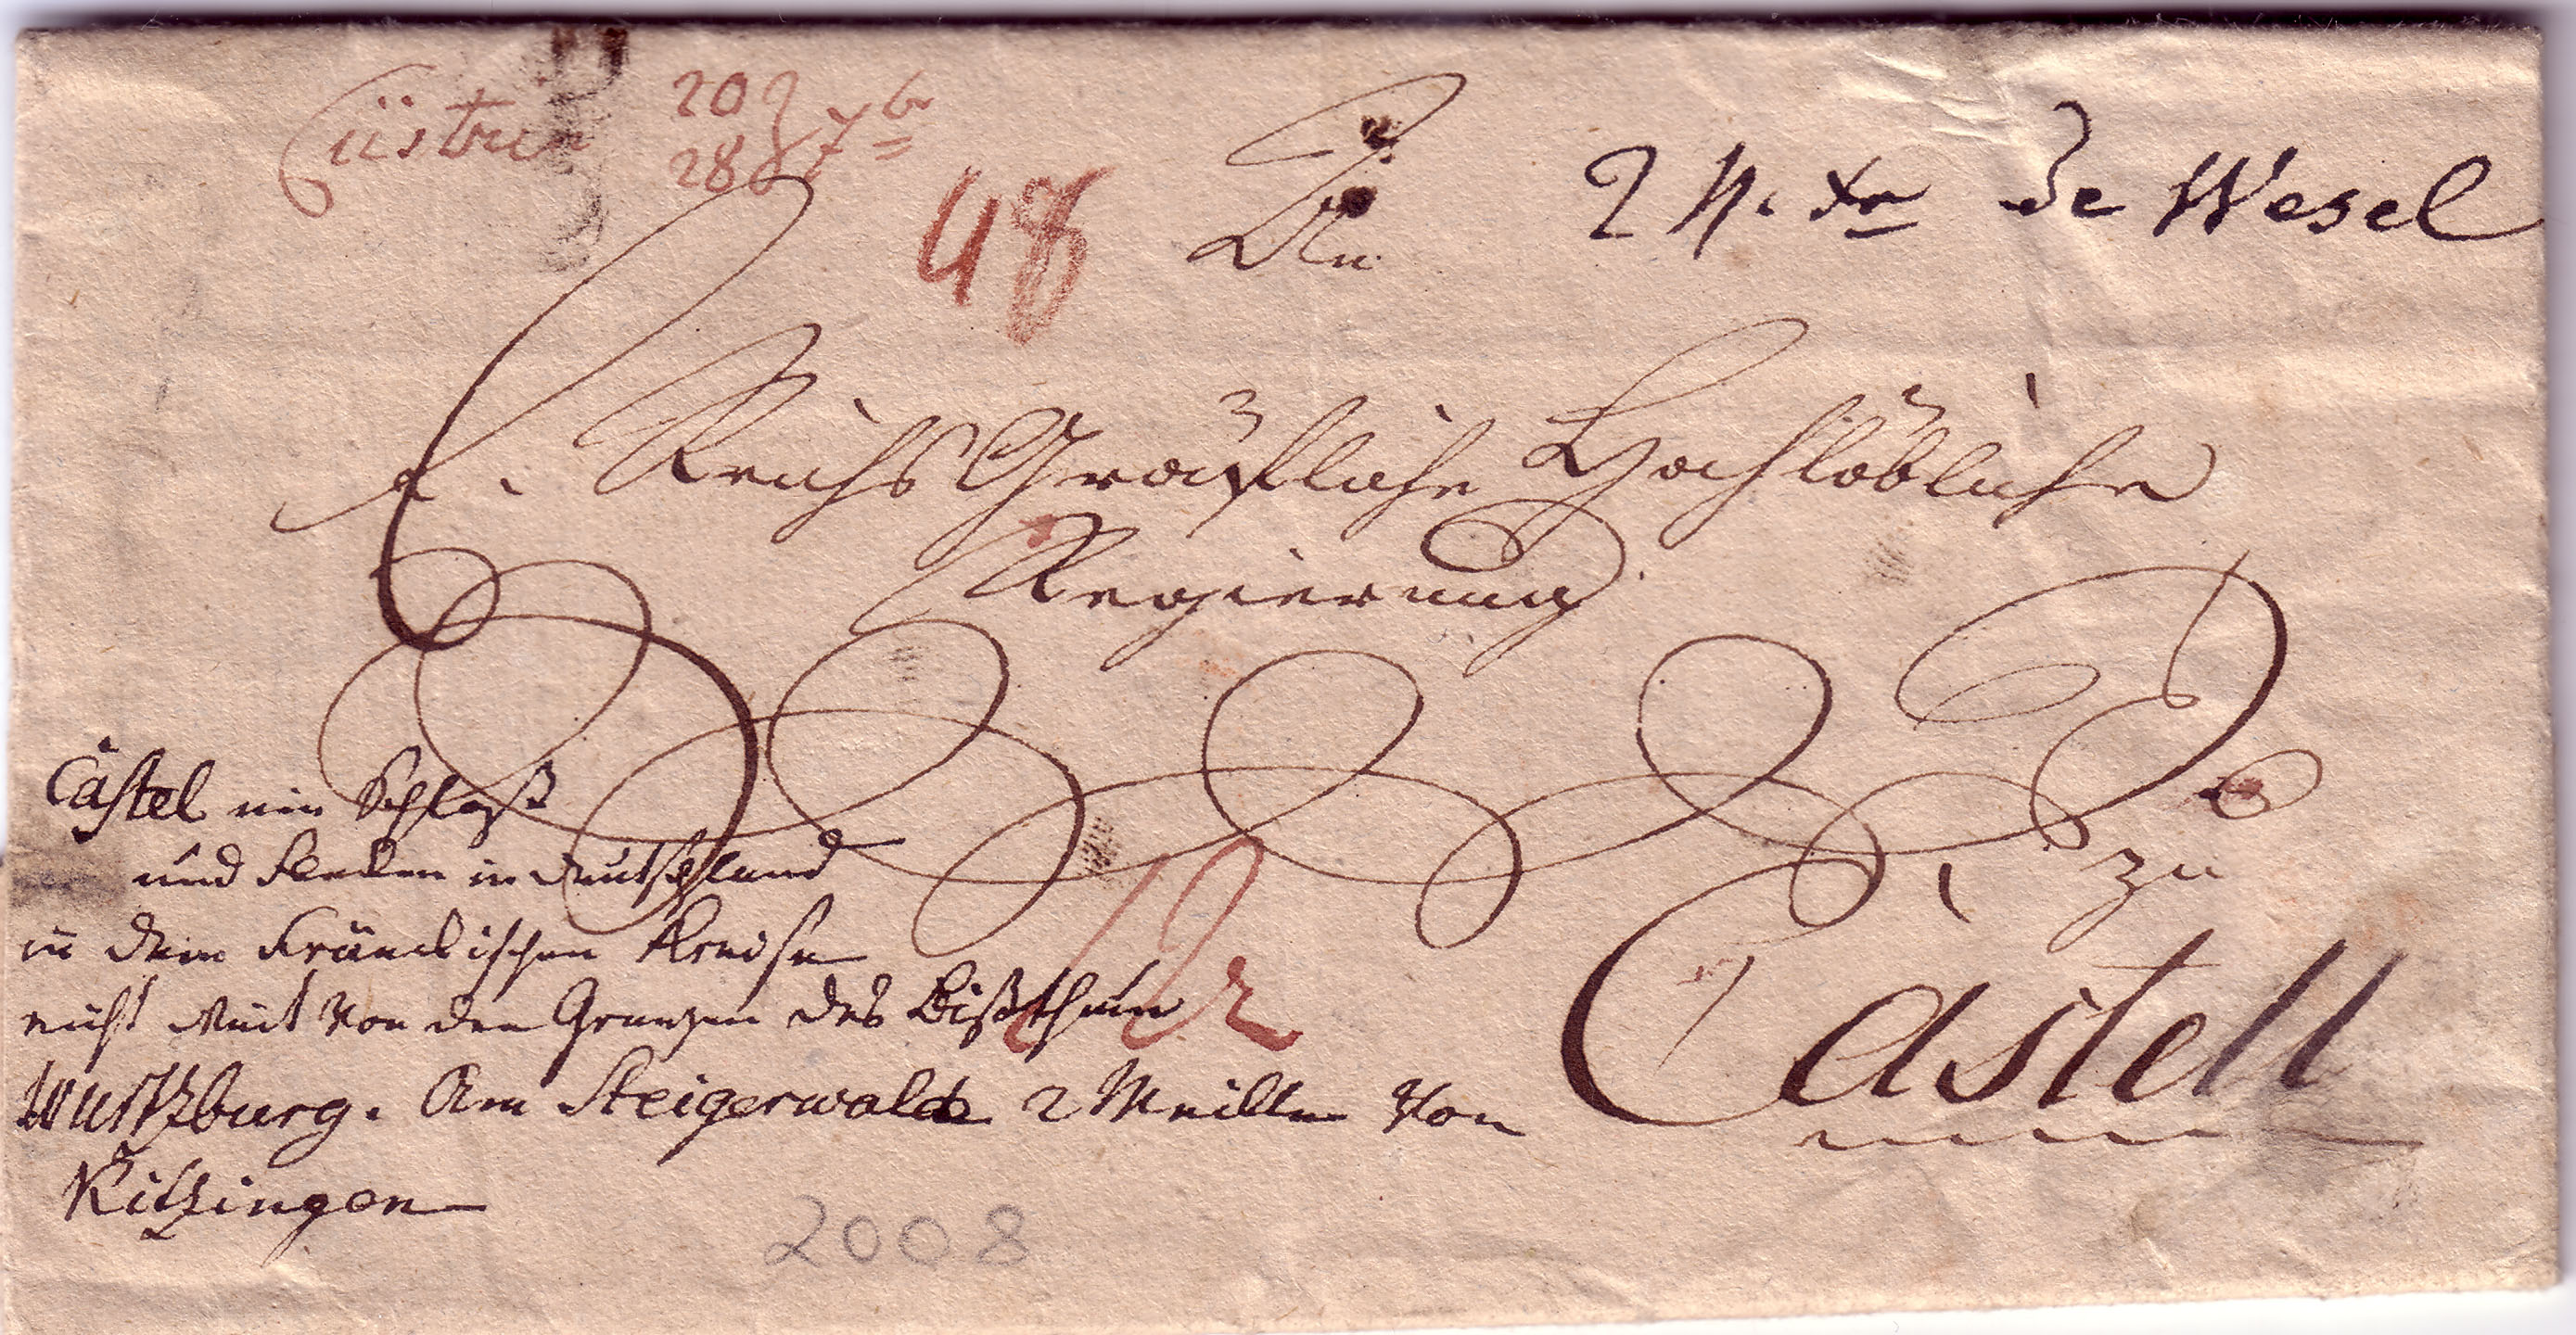 Cüstrin 202
288 7br
48
An
2 N. Xr de Wesel
E. ReichsGräfliche Hochlöbliche
Regierung
zu
Castell
Castel ein Schloß
und Flecken in Deutschland
in dem Fränckischen Kreise
nicht weit von den Grenzen des Bißthum
Wurtzburg. Am Steigerwalde 2 Meillen von
Kitzingen
12
2008